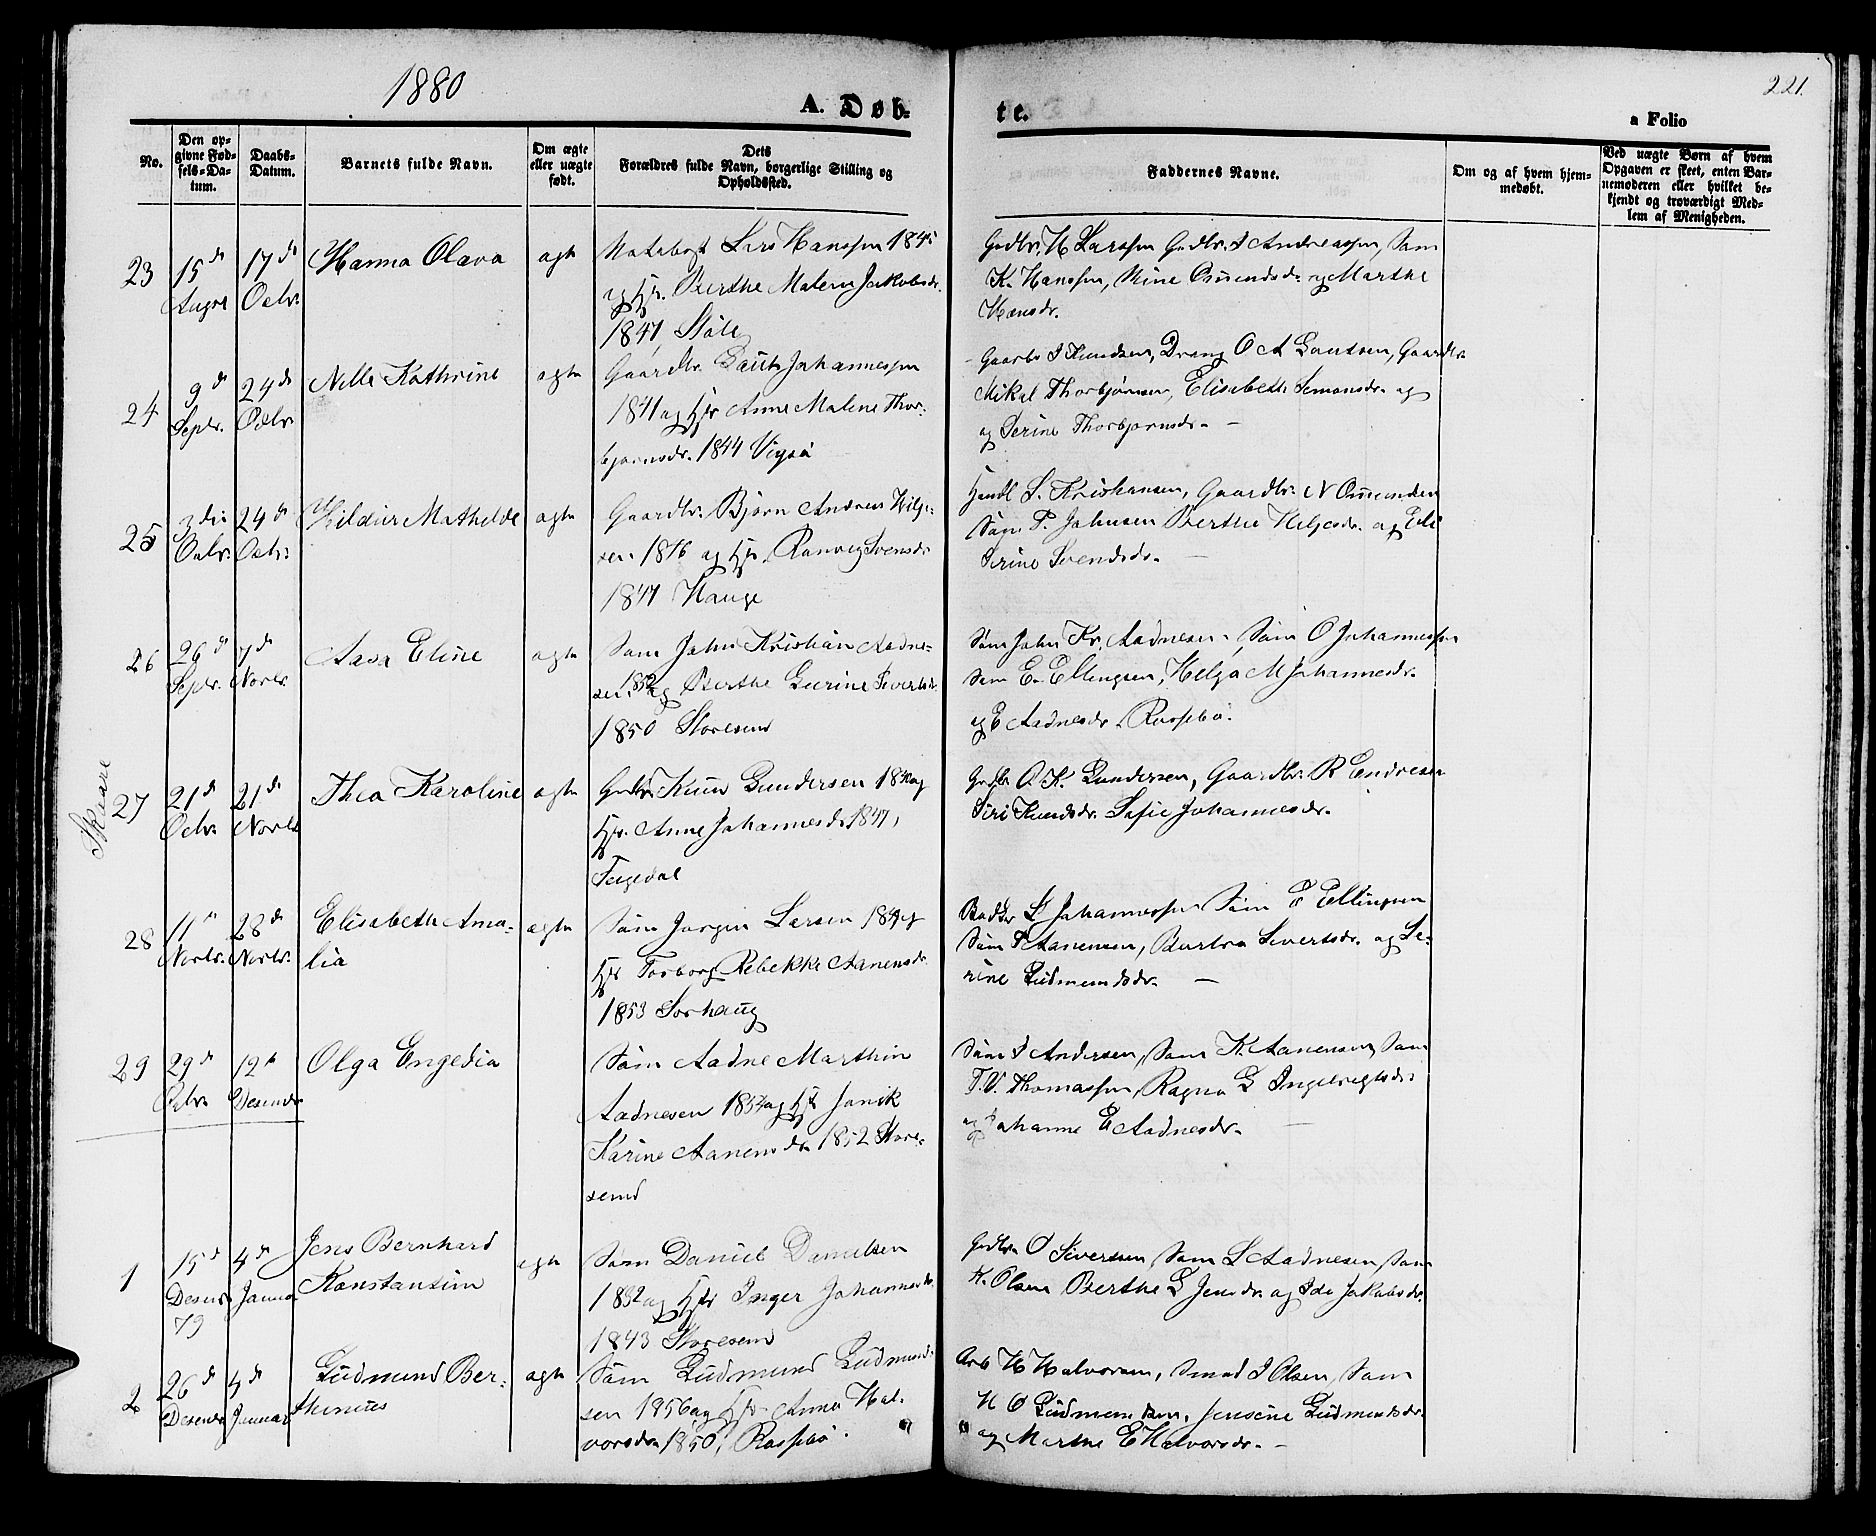 1880
221.
A. Døb-
te.
a Folio
No.
Den op-
givne Fød-
sels-Da-
tum.
Daabs-
Datum.
Barnets fulde Navn.
Om ægte
eller uægte
født.
Dets
Forældres fulde Navn, borgerlige Stilling og
Opholdssted.
Faddernes Navne.
Om og af hvem hjem-
medøbt.
Ved uægte Børn af hvem
Opgaven er skeet, enten Bar-
nemoderen eller hvilket be-
kjendt og troværdigt Med-
lem af Menigheden.
23
15de
Augst
17de
Octbr.
Hanna Olava
ægte
Lars Hanssen 1845
og Hst. Berthe Malene Jakobsdr.
1847, Støle
Grdbr. H Larssen Grdbr. I Andreassen, Søm
K. Hanssen, Stine Osmundsdr. og Marthe
Hansdr.
24
9de
Septr.
24de
Octbr.
Nille Kathrine
ægte
Gaardbr. Gaute Johannessen
1841 og Hst. Anne Malene Thor-
bjørnsdr. 1844 Vigsø
Gaardb I Knudsen, Dreng O A Gautsen, Gaardbr
Mikal Thorbjørnsen, Elisabeth Semonsdr. og
og Serine Thorbjørnsdr. —
25
3die
Octbr.
24de
Octbr.
Hildur Mathilde
ægte
Gaardbr. Bjørn Andreas Helge-
sen 1846 og Hst. Ranveig Svensdr
1847 Hauge
Handl S. Kristiansen, Gaardbr. N Osmundsen
Søm P. Johnsen Berthe Helgesdr. og Eli
Serine Svendsdr. —
26
26de
Septr.
7de
Novbr.
Aasa Eline
ægte
Søm John Kristian Aadne-
sen 1852 og Berthe Gurine Sivertsdr.
1850 Storesund
Søm John Kr. Aadnesen, Søm O Johannessen
Søm E. Ellingsen, Helga M Johannesdr.
og E Aadnesdr. Rossebø.
Skaare
27
21de
Octbr.
21de
Novbr
Thea Karoline
ægte
Grdbr. Knut Gundersen 1840 og
Hst. Anne Johannesdr. 1847,
Fagedal
Grdbr. O. K. Gundersen, Gaardbr. R Endresen
Siri Knudsdr. Sofie Johannesdr.
28
11te
Novbr.
28de
Novbr.
Elisabeth Ama-
lia
ægte
Søm Jørgen Larsen 1849 og
Hst Torborg Rebekke Aanensdr.
1853 Sørhaug
L Johannessen Søm E Ellingsen
Søm T Aanensen, Bertha Sivertsdr. og Se-
rine Gudmundsdr. —
29
29de
Octbr.
12te
Desembr
Olga Engedia
Søm Aadne Marthin
Aadnesen 1854 og Hst Janik
Karine Aanensdr. 1852 Store-
sund
Søm I Andersen, Søm K. Aanensen, Søm
T. V. Thomassen, Ragna G Ingebrigtsdr.
og Johanne E Aadnesdr. —
1
15de
Desembr
79
4de
Januar
Jens Bernhard
Konstantin
ægte
Søm Daniel Danielsen
1832 og Hst Inger Johannesdr.
1843 Storesund
Grdbr. O Sivertsen, Søm L Aadnesen, Søm
K. Olsen Berthe G Jensdr. og Ida Jakobsdr.
2
26de
Desembr
4de
Januar
Gudmund Ber-
thinius
ægte
Søm Gudmund Gudmund-
sen 1856 og Hst. Anna Hal-
vorsdr. 1850, Rossebø.
Arb H Halvorsen, Smed I Olsen, Søm
H O Gudmundsen, Jensine Gudmundsdr.
og Marthe E Halvorsdr. —